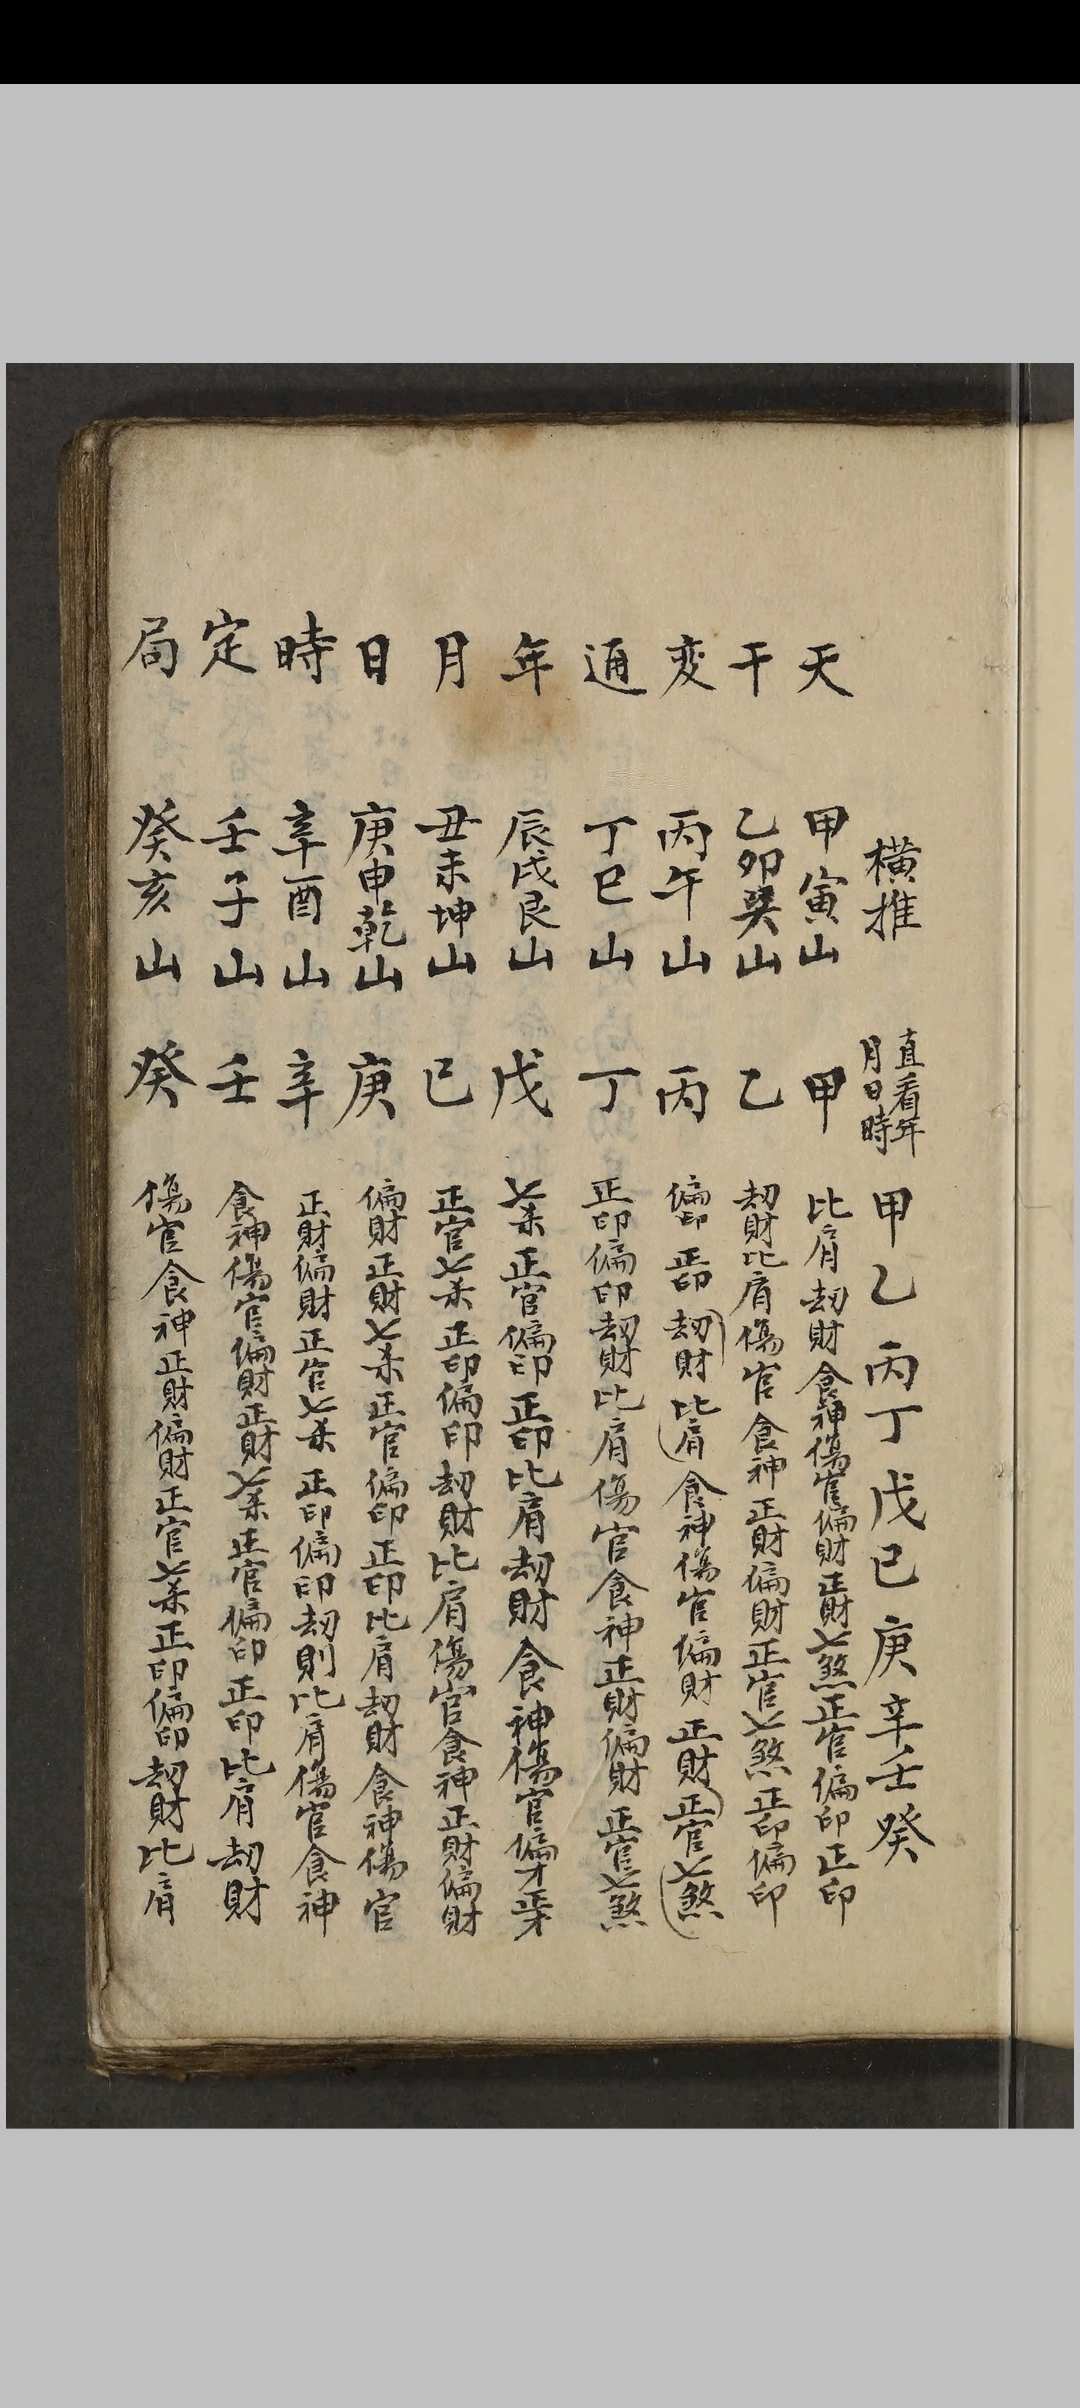 横推 直看年月日時 甲乙丙丁戊己庚辛壬癸
天 甲寅山 甲 比肩刼財食神傷官偏財正財七煞正官偏印正印
干 乙卯巽山 乙 刼財比肩傷官食神正財偏財正官七煞正印偏印
変 丙午山 丙 偏印正印刼財比肩食神傷官偏財正財正官七煞
通 丁巳山 丁 正印偏印刼財比肩傷官食神正財偏財正官七煞
年 辰戌艮山 戊 七杀正官偏印正印比肩刼財食神傷官偏才正才
月 丑未坤山 己 正官七杀正印偏印刼財比肩傷官食神正財偏財
日 庚申乾山 庚 偏財正財七杀正官偏印正印比肩刼財食神傷官
時 辛酉山 辛 正財偏財正官七杀正印偏印刼則比肩傷官食神
定 壬子山 壬 食神傷官偏財正財七杀正官偏印正印比肩刼財
局 癸亥山 癸 傷官食神正財偏財正官七杀正印偏印刼財比肩